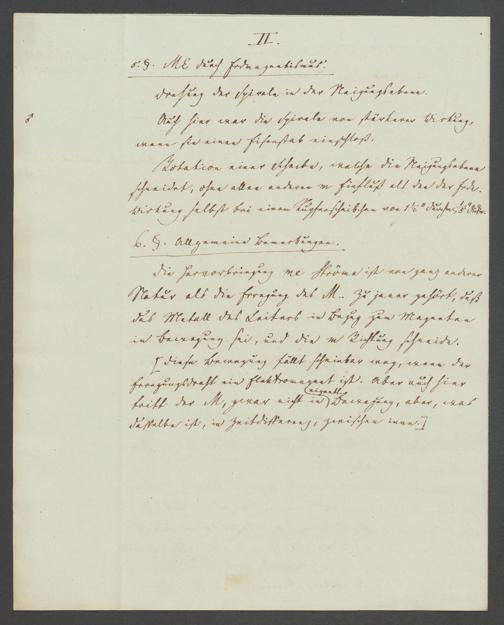 II.
5. §. ME durch Erdmagnetismus.
Drehung der Spirale in der Neigungsebene.
Auch hier war die Spirale von stärkerer Wirkung,
wenn sie einen Eisenstab einschloß.
Rotation einer Scheibe, welche die Neigungsebene
schneidet, ohne allen anderen m Einfluß als den der Erde.
Wirkung selbst bei einem Kupferscheibchen von 1½"
6. §. Allgemeine Bemerkungen.
Die Hervorbringung me Ströme ist von ganz anderer
Natur als die Erregung des M.. Zu jener gehört, daß
das Metall des Leiters in Bezug zum Magneten
in Bewegung sei, und die m Richtung schneide.
[Diese Bewegung fällt scheinbar weg, wenn der
Erregungsdraht ein Elektromagnet ist. Aber auch hier
tritt der M, zwar nicht in eigentl. Bewegung, aber, was
dasselbe ist, in Zeitdifferenz, zwischen inne.]